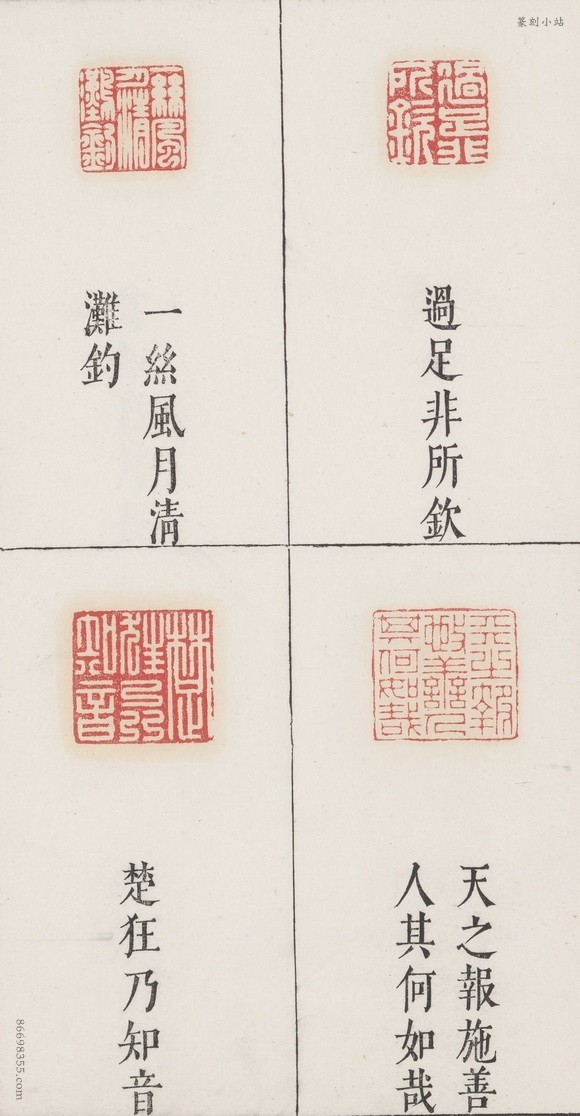 篆刻小站
過足非所欽
一絲風月清
灘釣
天之報施善
人其何如哉
楚狂乃知音
86698355.com